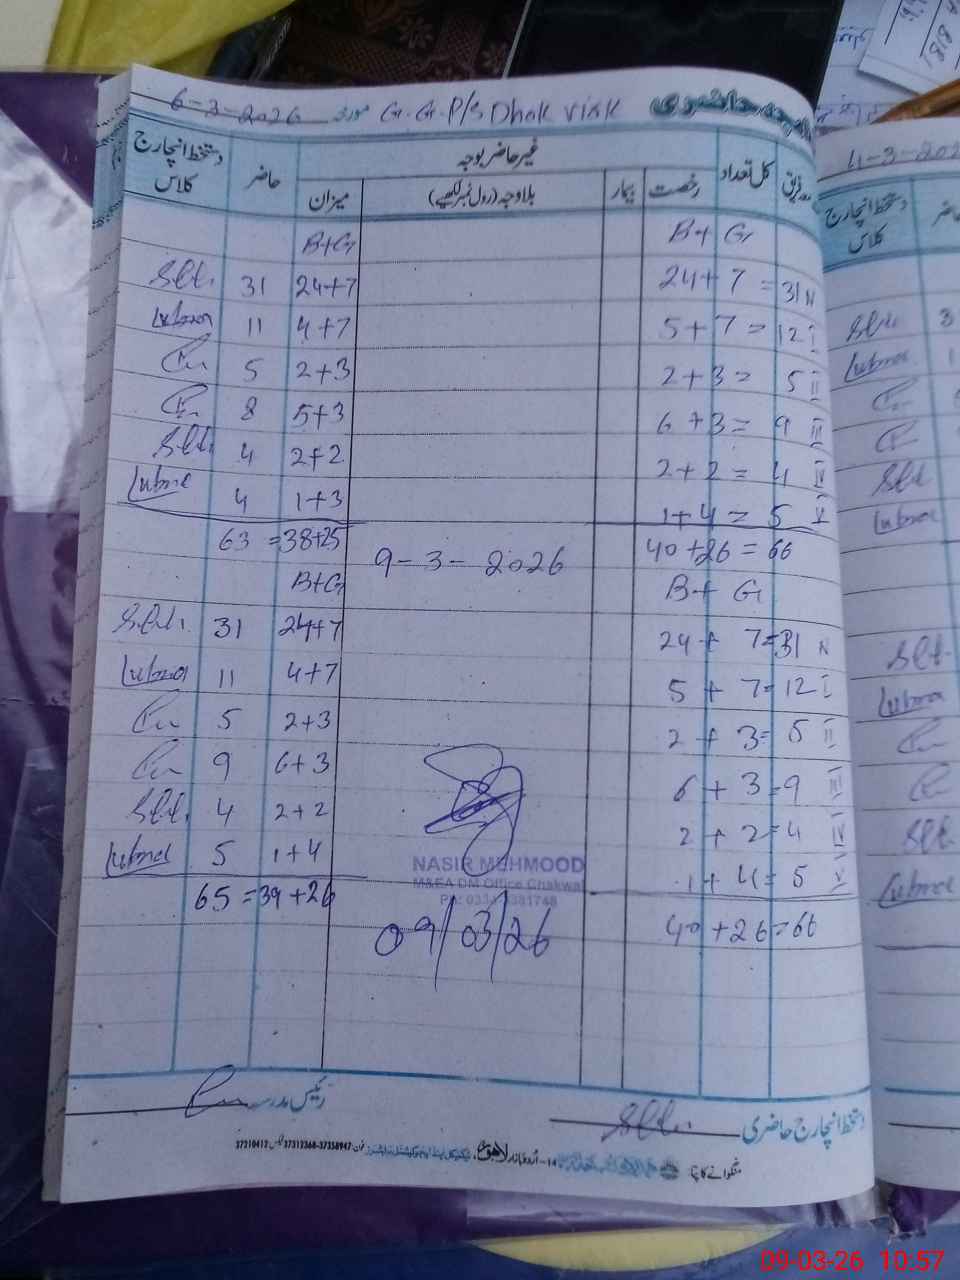 6-3-2026 مورخہ G.G.P/S Dhok Virk گوشوارہ حاضری
کل تعداد غیر حاضر بوجہ حاضر دستخط انچارج کلاس
رخصت بیمار بلاوجہ (رول نمبر لکھیے) میزان
B+G B+G
24+7=31 N 24+7 31
5+7=12 I 4+7 11 Lubna
2+3=5 II 2+3 5
6+3=9 III 5+3 8
2+2=4 IV 2+2 4
1+4=5 V 1+3 4 Lubna
40+26=66 63=38+25
9-3-2026
B+G B+G
24+7=31 N 24+7 31
5+7=12 I 4+7 11 Lubna
2+3=5 II 2+3 5
6+3=9 III 6+3 9
2+2=4 IV 2+2 4
1+4=5 V 1+4 5 Lubna
40+26=66 65=39+26
NASIR MEHMOOD
M&EA DM Office Chakwal
09/03/26
دستخط انچارج حاضری رئیس مدرسہ
منگوانے کا پتہ: ۱۴-اُردو بازار لاہور فون 37358947-37312368 فیکس 37310412
4-3-202
دستخط انچارج کلاس حاضر
3
Lubna 1
Lubna
Lubna
Lubna
09-03-26 10:57